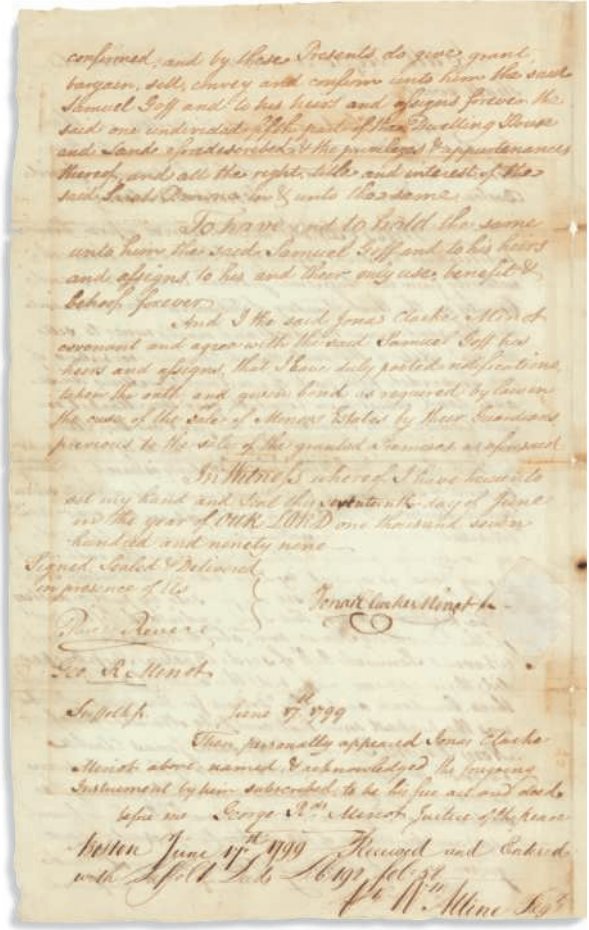 confirmed, and by these Presents do give, grant
bargain, sell, convey and confirm unto him the said
Samuel Goff and to his heirs and assigns forever the
said one undivided fifth part of the Dwelling House
and Lands aforedescribed & the privileges & appurtenances
thereof, and all the right, title and interest of the
said Sarah in & unto the same
To have and to hold the same
unto him the said Samuel Goff and to his heirs
and assigns, to his and their only use, benefit &
behoof forever
And I the said Jonas Clarke Minot
covenant and agree with the said Samuel Goff his
heirs and assigns, that I have duly posted notifications
taken the oath, and given bond as required by law in
the case of the Sale of Minors Estates by their Guardians
previous to the sale of the granted Premises as aforesaid
In Witness whereof I have hereunto
set my hand and Seal this seventeenth day of June
in the year of OUR LORD one thousand seven
hundred and ninety nine
Signed Sealed & Delivered
in presence of Us
Jonas Clarke Minot
Paul Revere
Geo. R. Minot
Suffolk ss. June 17th 1799
Then personally appeared Jonas Clarke
Minot above named, & acknowledged the foregoing
Instrument by him subscribed to be his free act and deed
before me George Rds Minot Justice of the Peace
Boston June 17th 1799 Received and Entered
with Suffolk Deeds Lib 192 fol. 52
Wm Alline Regr